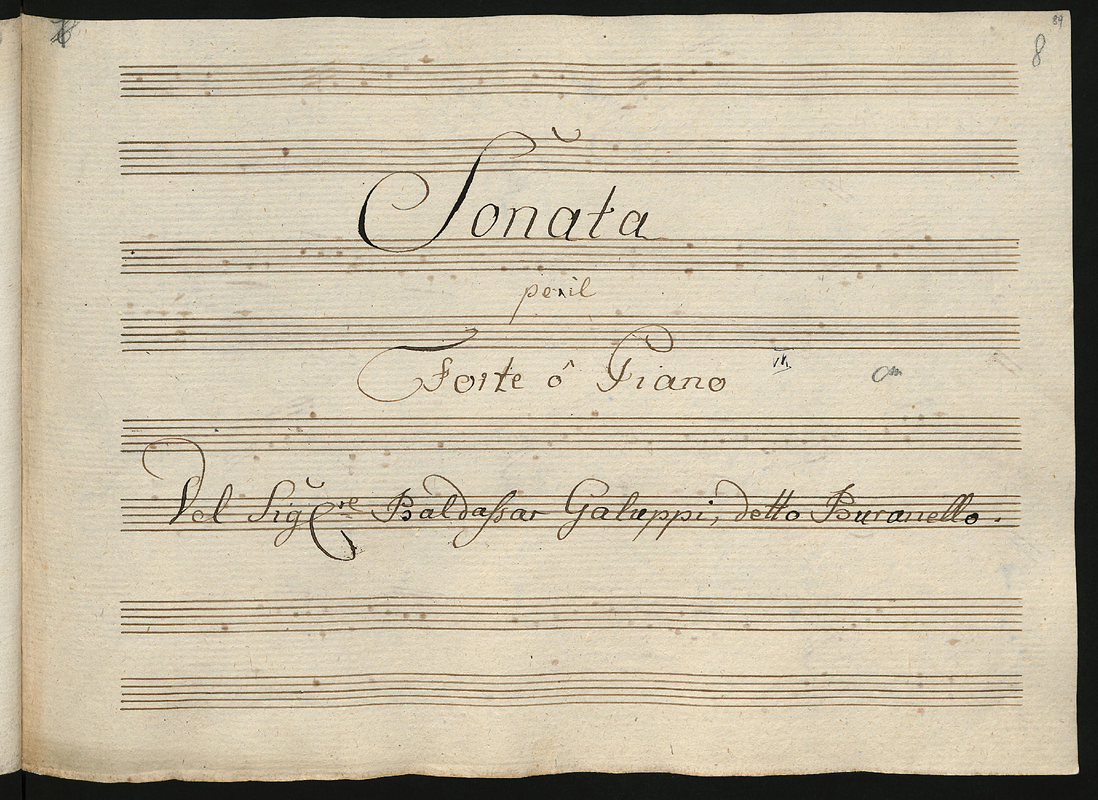 89
8
Sonata
per il
Forte ô Piano
Del Sigre Baldassar Galuppi, detto Buranello.